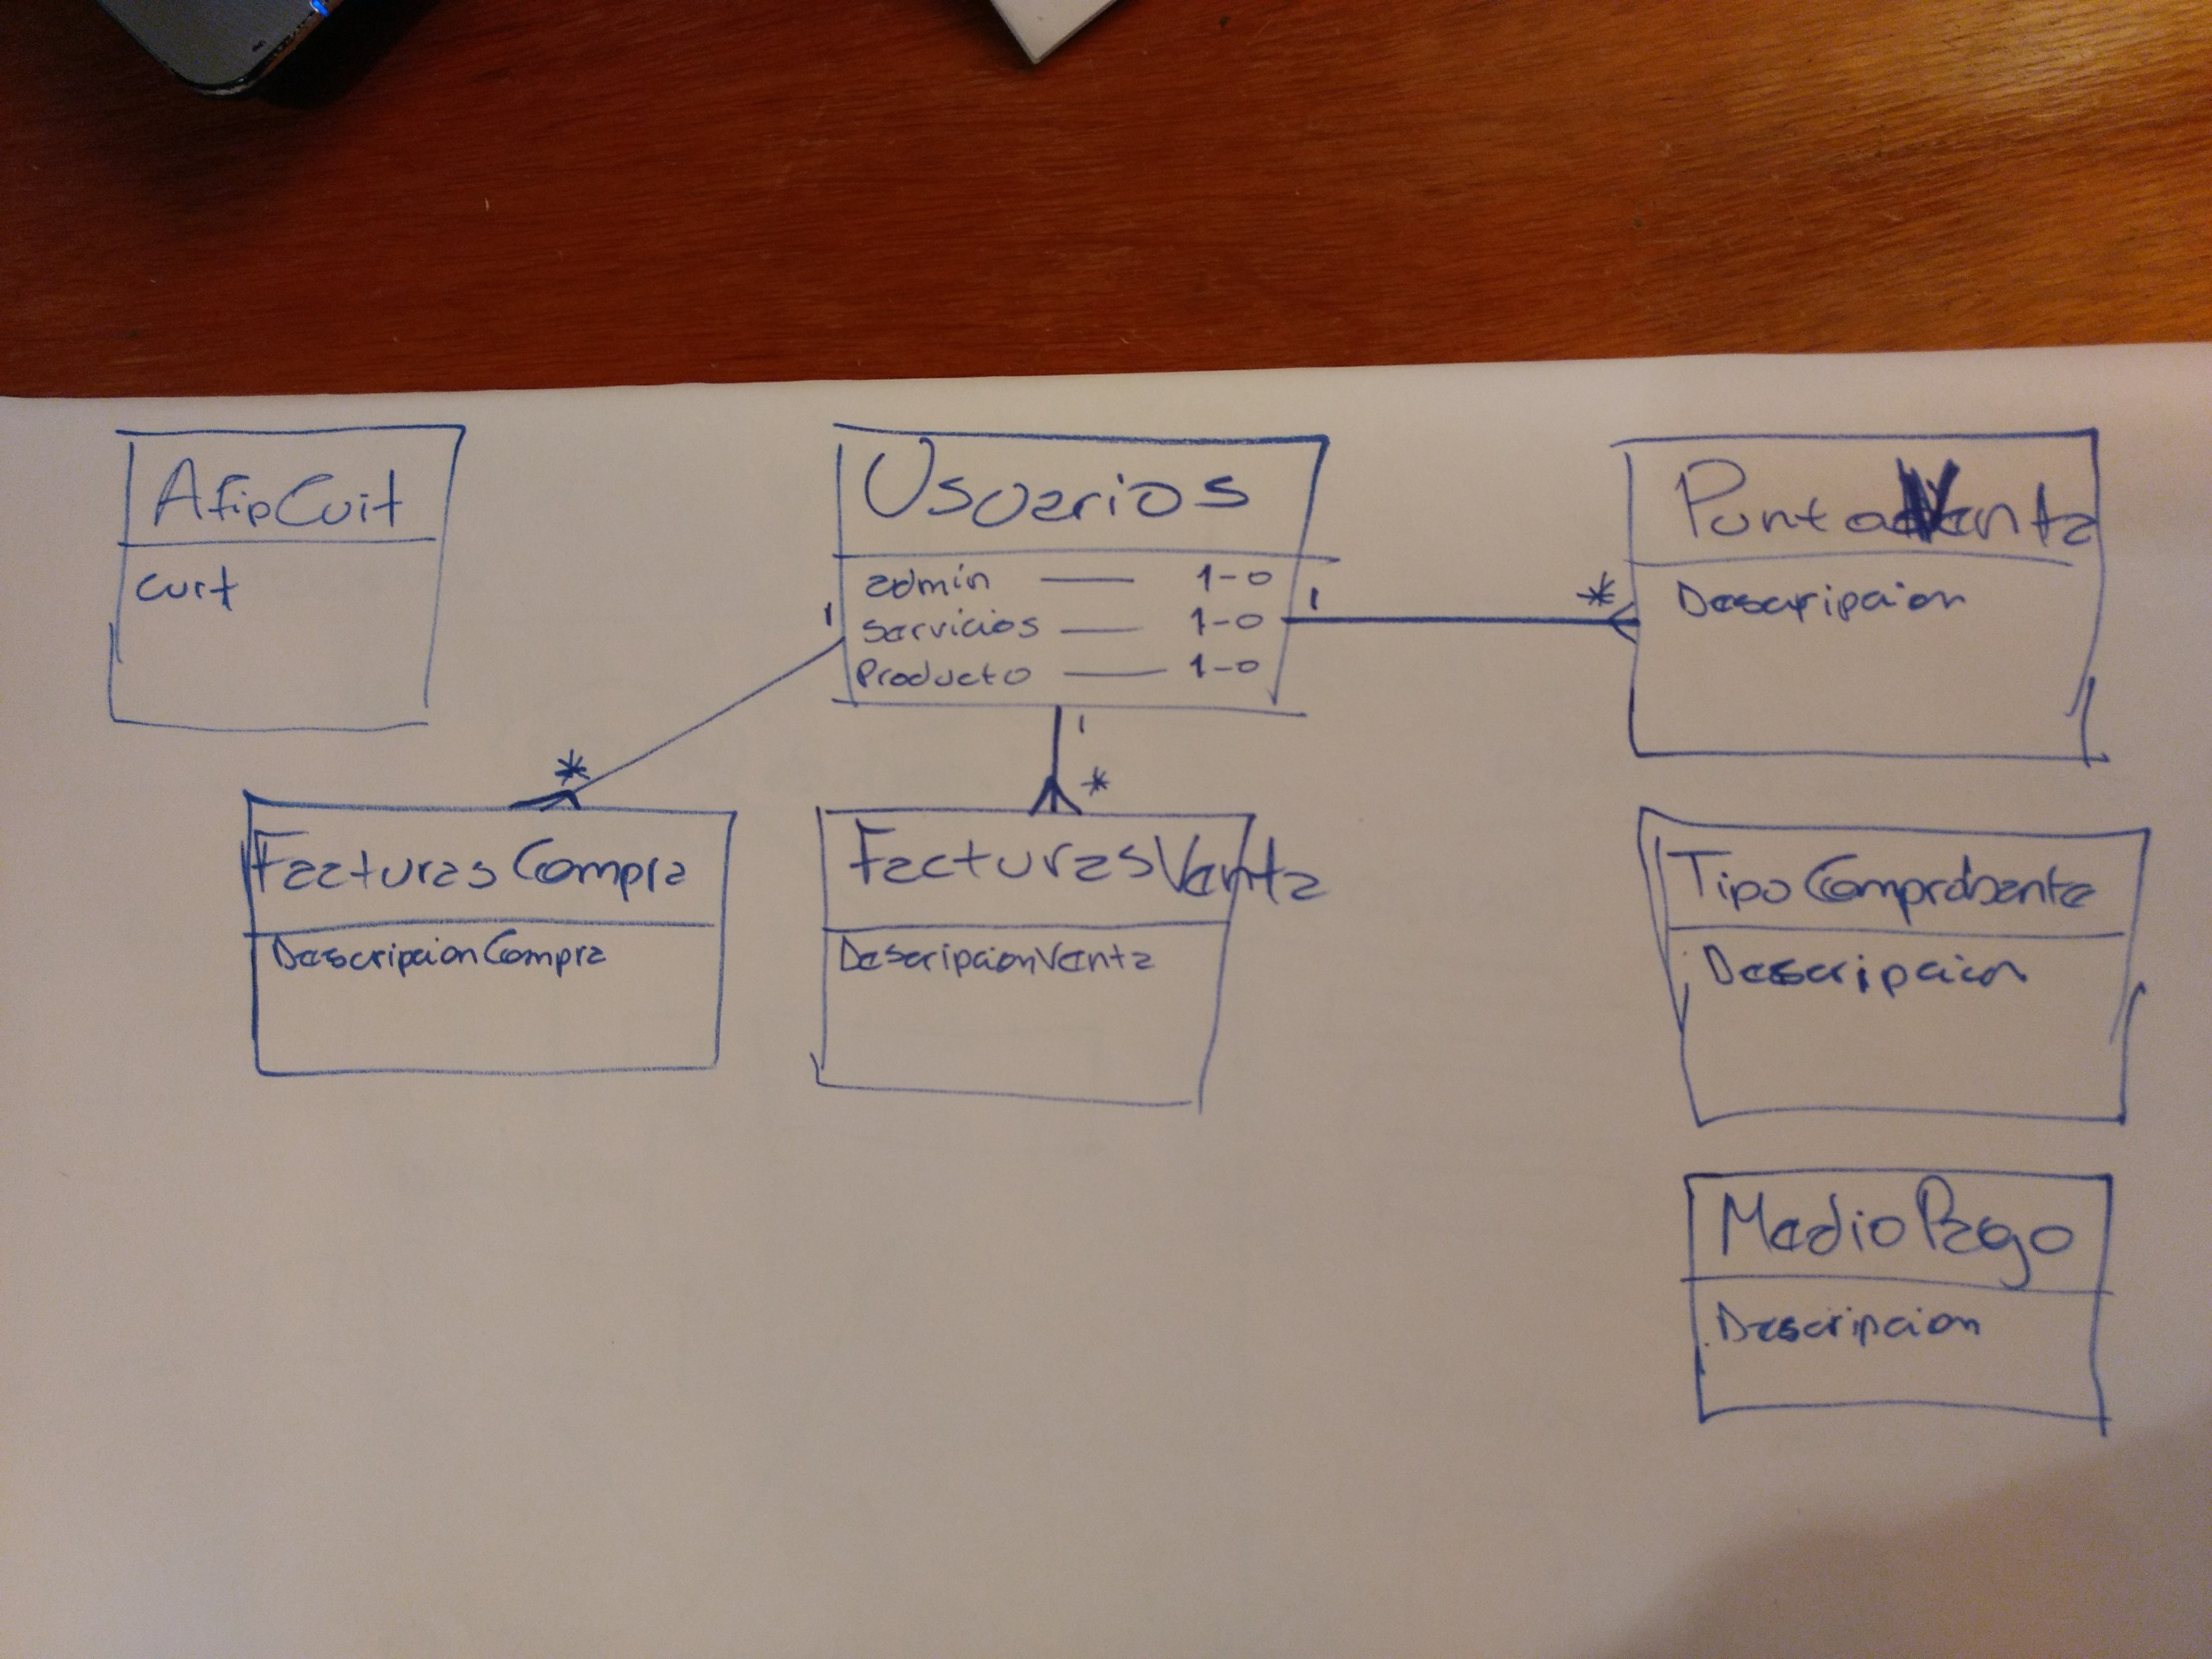 AfipCuit
cuit
Usuarios
admin — 1-0
servicios — 1-0
Producto — 1-0
1
1
*
PuntaVenta
Descripcion
1
*
*
FacturasCompra
DescripcionCompra
FacturasVenta
DescripcionVenta
TipoComprobante
Descripcion
MedioPago
Descripcion